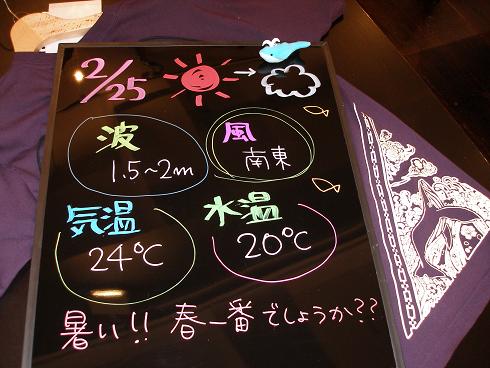 2/25
波
1.5~2m
風
南東
気温
24℃
水温
20℃
暑い!! 春一番でしょうか??